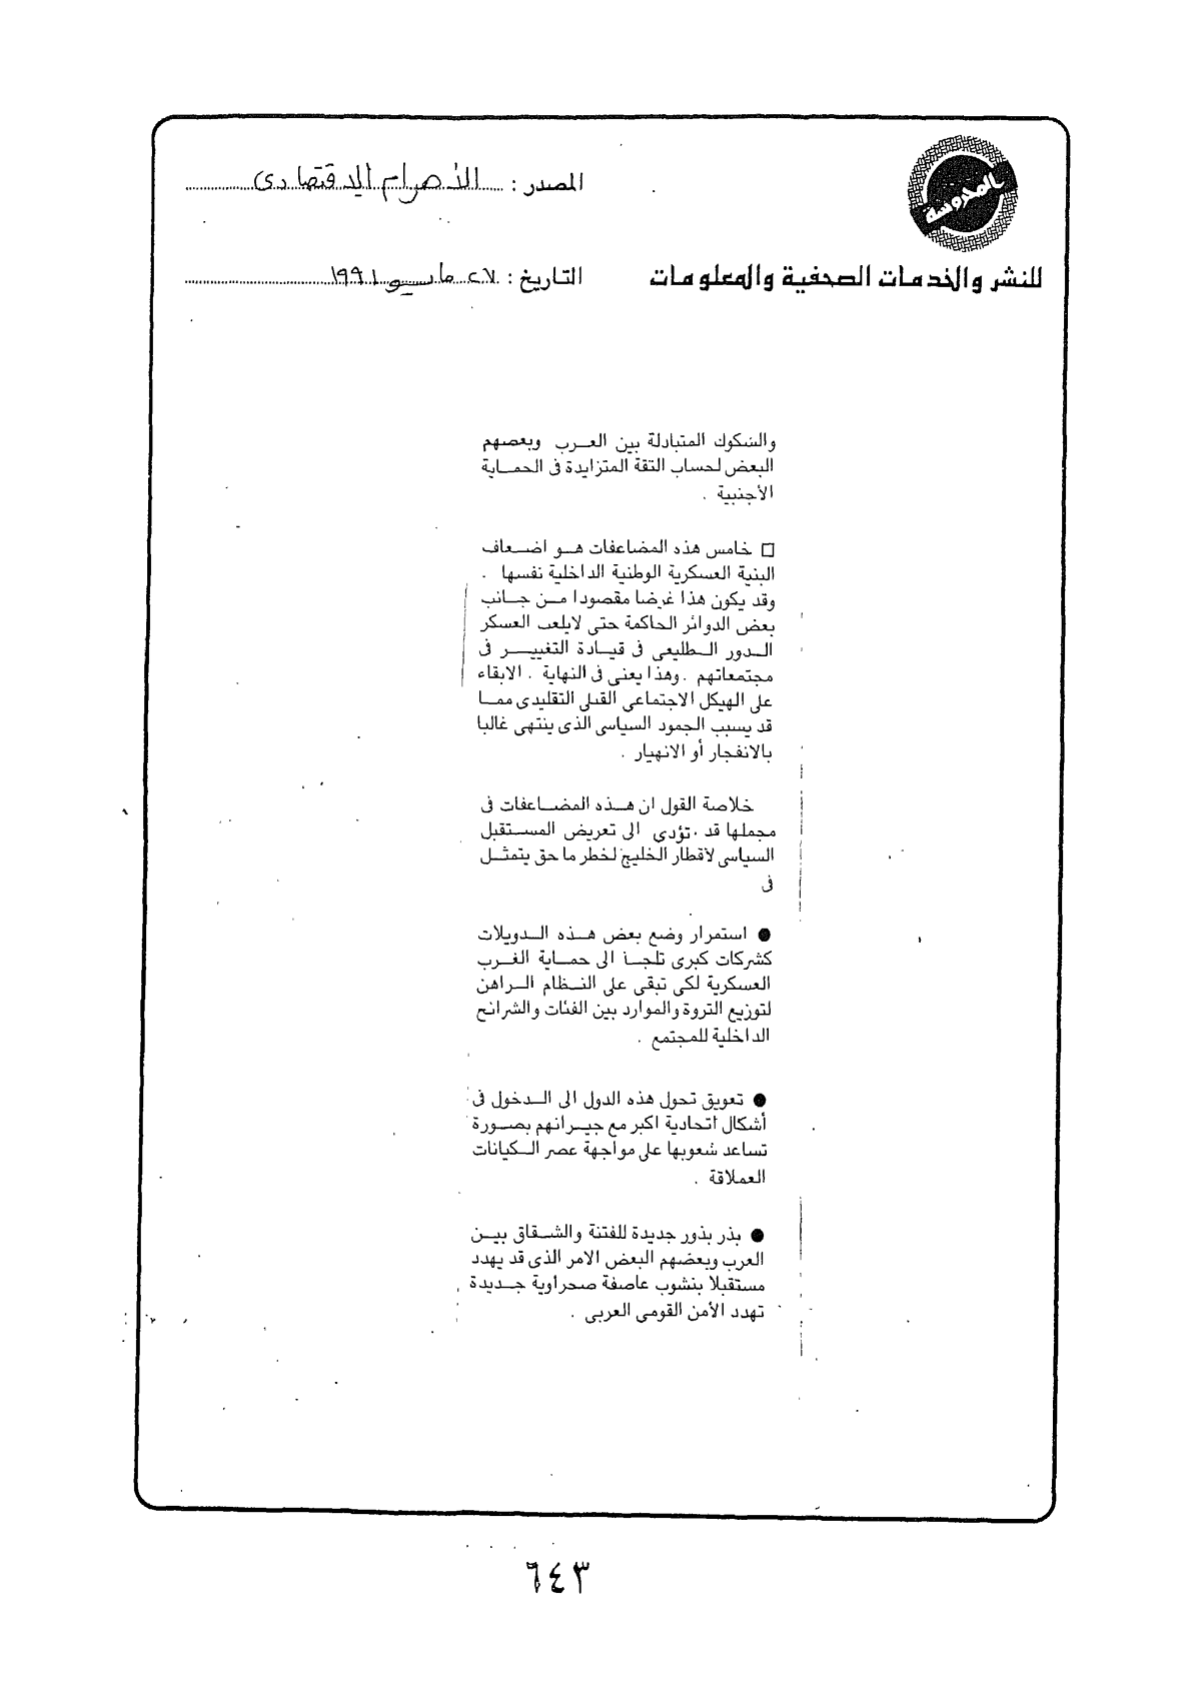 المحروسة
المصدر : الأهرام الاقتصادى
للنشر والخدمات الصحفية والمعلومات
التاريخ : ٢٧ مايو ١٩٩١
والشكوك المتبادلة بين العرب وبعضهم
البعض لحساب الثقة المتزايدة فى الحماية
الأجنبية .
□ خامس هذه المضاعفات هو اضعاف
البنية العسكرية الوطنية الداخلية نفسها .
وقد يكون هذا غرضا مقصودا من جانب
بعض الدوائر الحاكمة حتى لايلعب العسكر
الدور الطليعى فى قيادة التغيير فى
مجتمعاتهم . وهذا يعنى فى النهاية . الابقاء
على الهيكل الاجتماعى القبلى التقليدى مما
قد يسبب الجمود السياسى الذى ينتهى غالبا
بالانفجار أو الانهيار .
خلاصة القول ان هذه المضاعفات فى
مجملها قد تؤدي الى تعريض المستقبل
السياسى لاقطار الخليج لخطر ماحق يتمثل
فى
● استمرار وضع بعض هذه الدويلات
كشركات كبرى تلجأ الى حماية الغرب
العسكرية لكى تبقى على النظام الراهن
لتوزيع الثروة والموارد بين الفئات والشرائح
الداخلية للمجتمع .
● تعويق تحول هذه الدول الى الدخول فى
أشكال اتحادية اكبر مع جيرانهم بصورة
تساعد شعوبها على مواجهة عصر الكيانات
العملاقة .
● بذر بذور جديدة للفتنة والشقاق بين
العرب وبعضهم البعض الامر الذى قد يهدد
مستقبلا بنشوب عاصفة صحراوية جديدة
تهدد الأمن القومى العربى .
٦٤٣